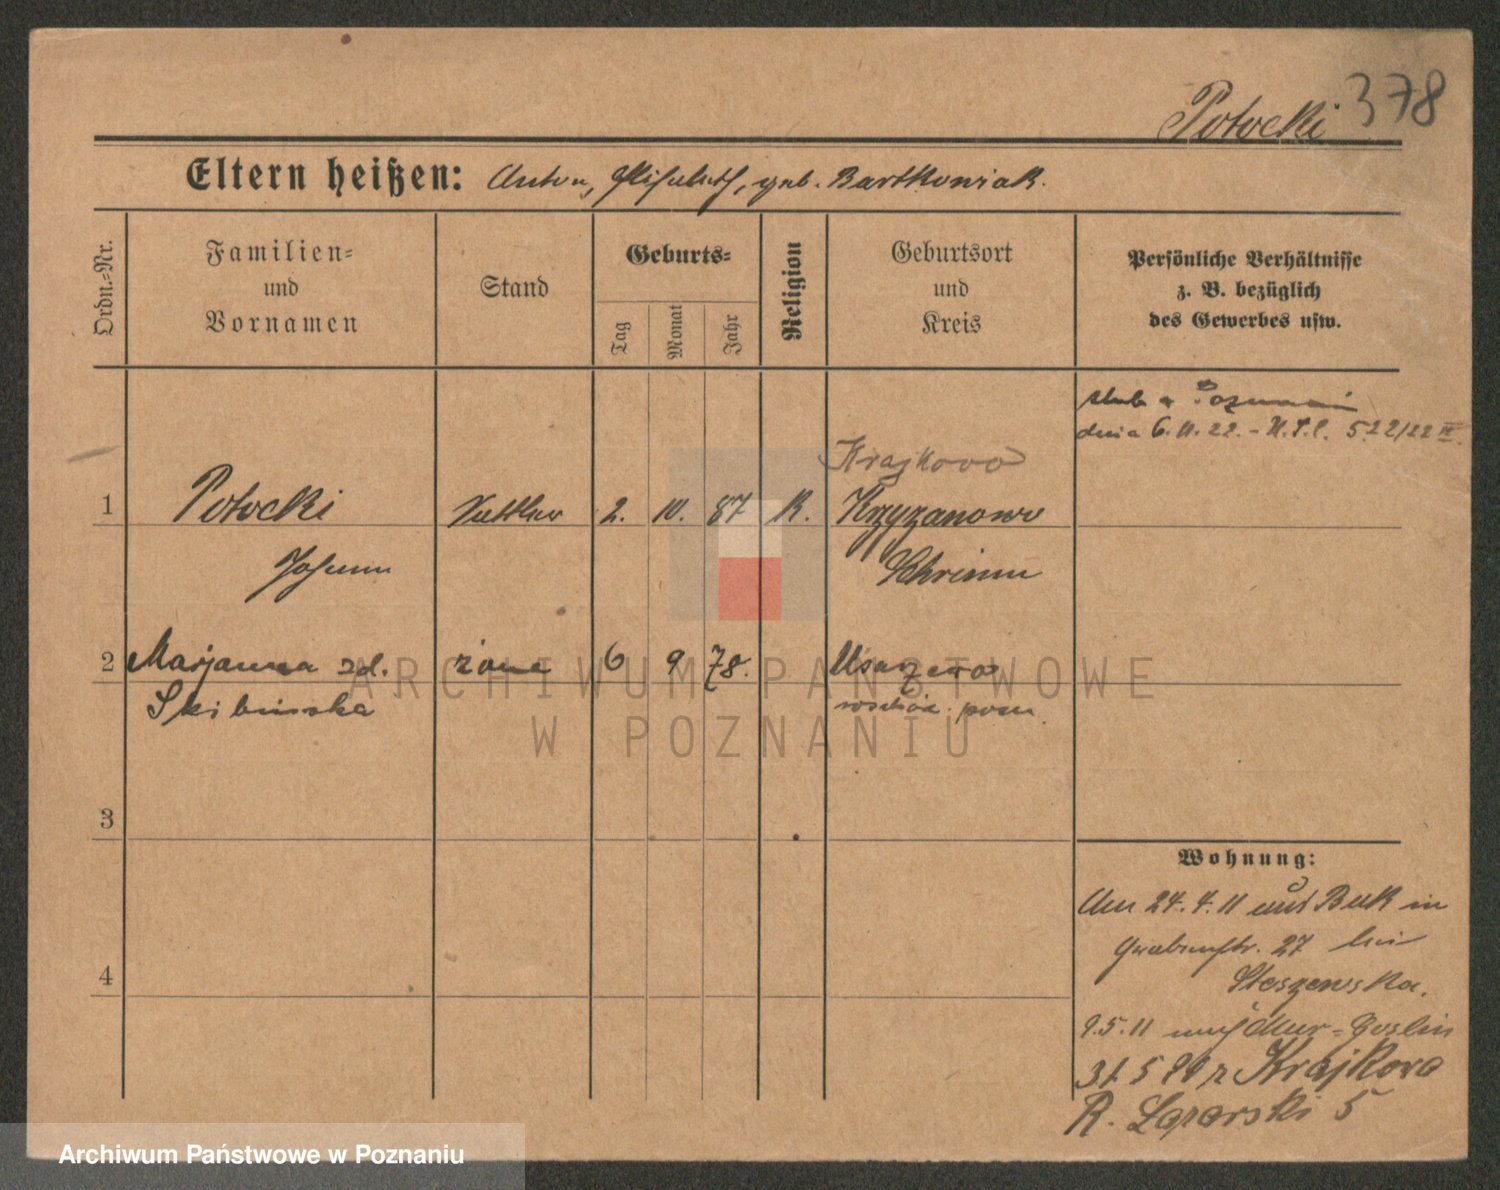 Potocki 378
Eltern heißen: Anton, Elisabeth, geb. Bartkowiak.
Ordn.-Nr.
Familien-
und
Vornamen
Stand
Geburts-
Tag
Monat
Jahr
Religion
Geburtsort
und
Kreis
Persönliche Verhältnisse
z. B. bezüglich
des Gewerbes usw.
ślub w Poznaniu
dnia 6.11.22. - 522/22
Krajkowo
1 Potocki Sattler 2. 10. 87 K. Krzyzanowo
Johann Schrimm
2 Marjanna zd. żona 6 9 78.
Skibinska pow.
3
4
Wohnung:
Am 24.4.11 aus Buk in
Grabenstr. 27 bei
Steszewska.
9.5.11 nach Mur-Goslin
31.5 20 z Krajkowa
R. Lazarski 5
ARCHIWUM PAŃSTWOWE
W POZNANIU
Archiwum Państwowe w Poznaniu